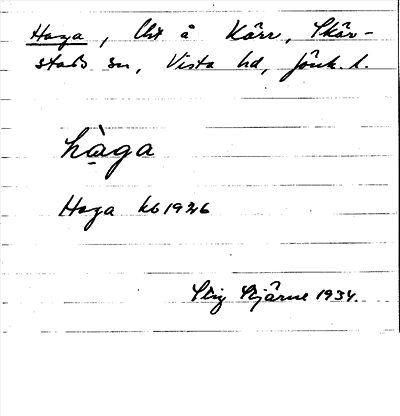 Haga, lht å Kärr, Skär-
stads sn, Vista hd, Jönk. l.
hạ̀ga
Haga kb 1926
Stig Bjärne 1934.